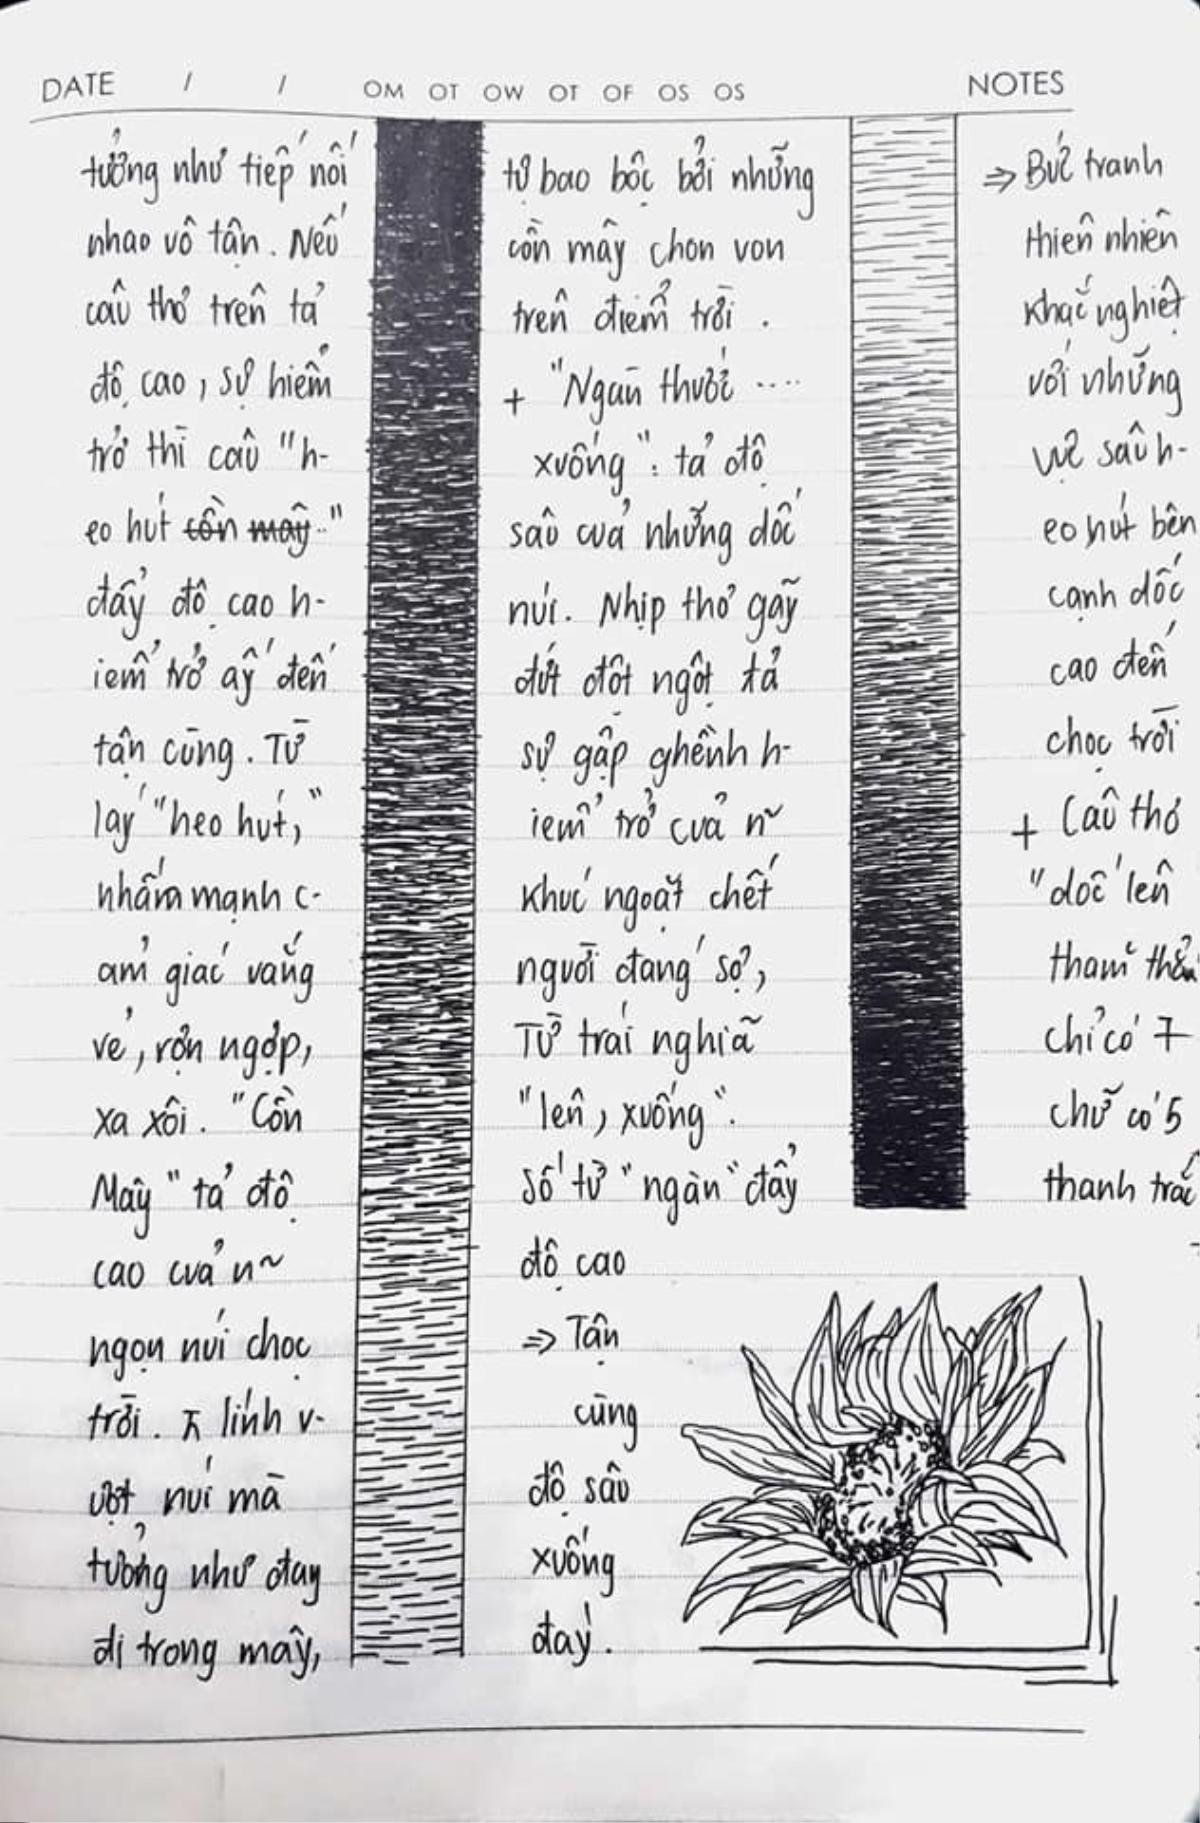 DATE / / OM OT OW OT OF OS OS NOTES
tưởng như tiếp nối
nhao vô tận. Nếu
câu thơ trên tả
độ cao, sự hiểm
trở thì câu "h-
eo hút cồn mây.."
đẩy độ cao h-
iểm trở ấy đến
tận cùng. Từ
láy "heo hút,"
nhấm mạnh c-
ảm giác vắng
vẻ, rợn ngợp,
xa xôi. "Cồn
Mây" tả độ
cao của n~
ngọn núi chọc
trời. lính v-
ượt núi mà
tưởng như đay
đi trong mây,
tự bao bộc bởi những
cồn mây chon von
trên điểm trời.
+ "Ngàn thước ....
xuống": tả độ
sâu của những dốc
núi. Nhịp thơ gãy
đứt đột ngột tả
sự gập ghềnh h-
iểm trở của n~
khúc ngoặt chết
người đang sợ,
Từ trái nghĩa
"lên, xuống".
Số từ "ngàn" đẩy
độ cao
⇒ Tận
cùng
độ sâu
xuống
đáy.
⇒ Bức tranh
thiên nhiên
khắc nghiệt
với những
vực sâu h-
eo hút bên
cạnh dốc
cao đến
chọc trời
+ Câu thơ
"dốc lên
thăm thẳm
chỉ có 7
chữ có 5
thanh trắc